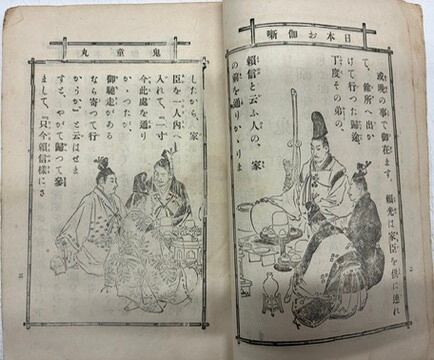 日本お伽噺
或晩の事で御在ます。頼光は家臣を供に連れ
て、餘所へ出か
けて行つた歸途、
丁度その弟の、
頼信と云ふ人の、家
の前を通りかゝりま
鬼童丸
したから、家
臣を一人内へ
入れて、『一寸
今此處を通り
かゝつたが、
御馳走がある
なら寄つて行
かうか』と云はせま
すと、やがて歸つて參
まして、『只今頼信樣にさ